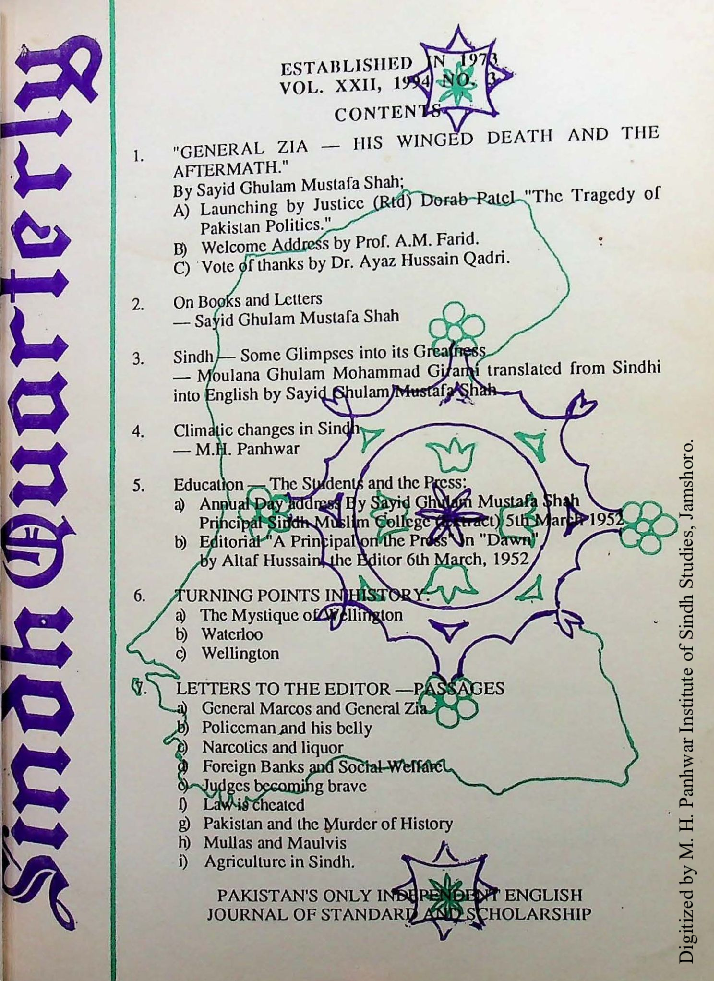 Sindh Quarterly
ESTABLISHED IN 1973
VOL. XXII, 1994 NO. 3
CONTENTS
1. "GENERAL ZIA — HIS WINGED DEATH AND THE
AFTERMATH."
By Sayid Ghulam Mustafa Shah;
A) Launching by Justice (Rtd) Dorab Patel "The Tragedy of
Pakistan Politics."
B) Welcome Address by Prof. A.M. Farid.
C) Vote of thanks by Dr. Ayaz Hussain Qadri.
2. On Books and Letters
— Sayid Ghulam Mustafa Shah
3. Sindh — Some Glimpses into its Greatness
— Moulana Ghulam Mohammad Girami translated from Sindhi
into English by Sayid Ghulam Mustafa Shah
4. Climatic changes in Sindh
— M.H. Panhwar
5. Education — The Students and the Press:
a) Annual Day address By Sayid Ghulam Mustafa Shah
Principal Sindh Muslim College (extract) 5th March 1952
b) Editorial "A Principal on the Press" in "Dawn"
by Altaf Hussain, the Editor 6th March, 1952
6. TURNING POINTS IN HISTORY:
a) The Mystique of Wellington
b) Waterloo
c) Wellington
7. LETTERS TO THE EDITOR —PASSAGES
a) General Marcos and General Zia
b) Policeman and his belly
c) Narcotics and liquor
d) Foreign Banks and Social Welfare
e) Judges becoming brave
f) Law is cheated
g) Pakistan and the Murder of History
h) Mullas and Maulvis
i) Agriculture in Sindh.
PAKISTAN'S ONLY INDEPENDENT ENGLISH
JOURNAL OF STANDARD AND SCHOLARSHIP
Digitized by M. H. Panhwar Institute of Sindh Studies, Jamshoro.